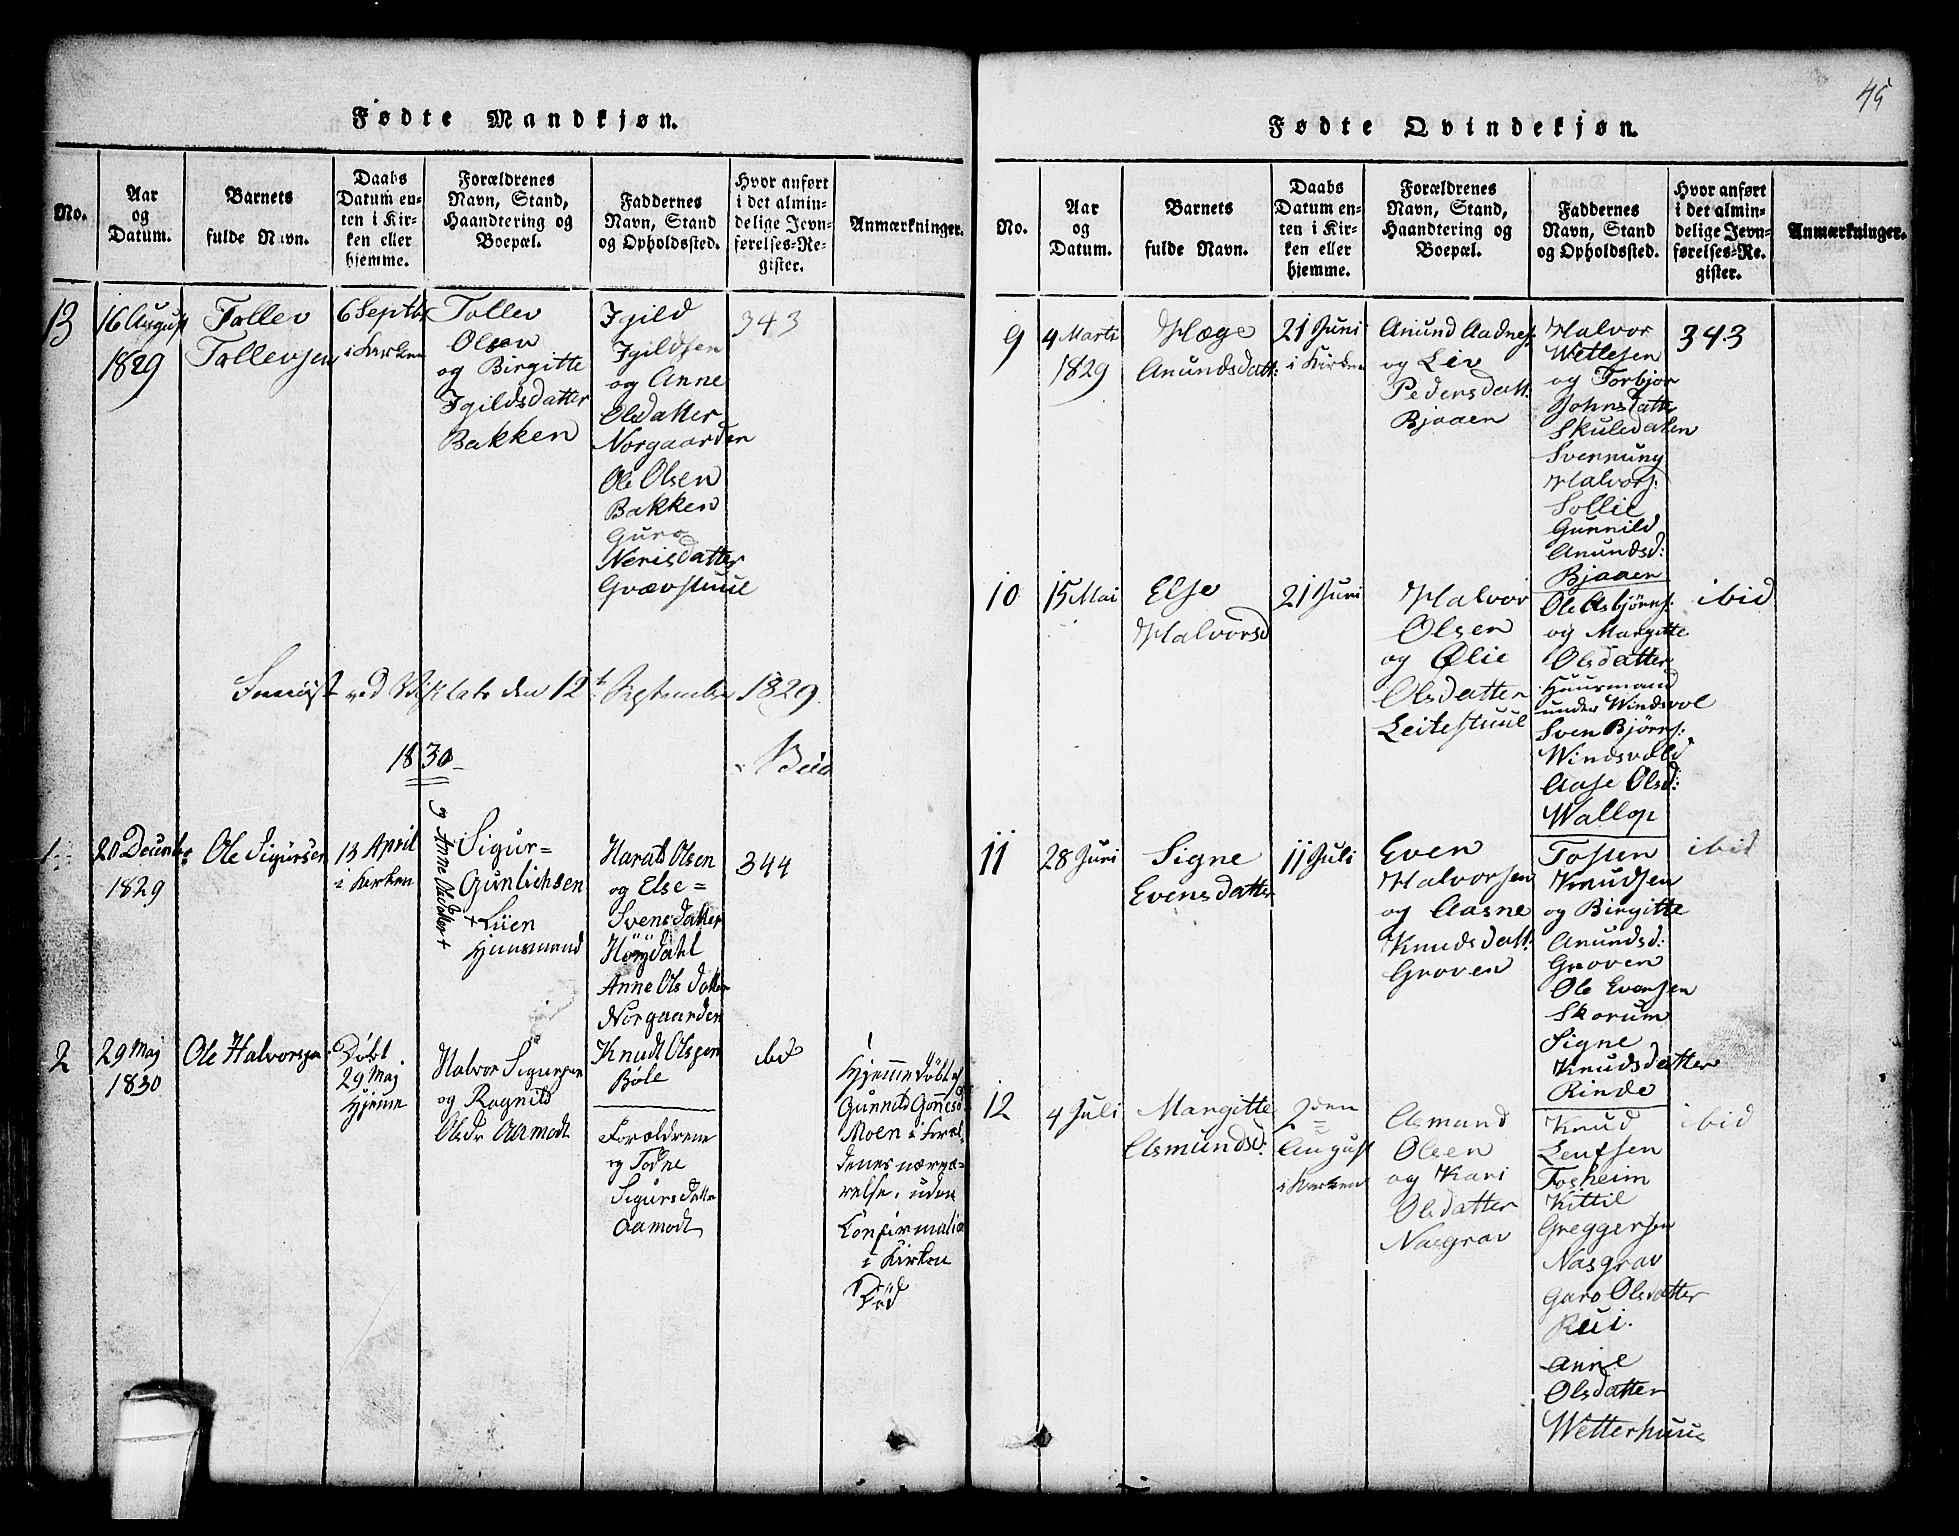 45
Fødte Mandkjøn.
No.
Aar
og
Datum.
Barnets
fulde Navn.
Daabs
Datum en-
ten i Kir-
ken eller
hjemme.
Forældrenes
Navn, Stand,
Haandtering og
Boepæl.
Faddernes
Navn, Stand
og Opholdssted.
Hvor anført
i det almin-
delige Jevn-
førelses-Re-
gister.
Anmærkninger.
13
16 August
1829
Tollev
Tollevsen
6 Septbr
i Kirken
Tollev
Olsen
og Birgitte
Igildsdatter
Bakken
Igild
Igildsen
og Anne
Olsdatter
Norgaarden
Ole Olsen
Bakken
Guro
Nerisdatter
Grævstuul
343
ved
den 12t September 1829
1830
1
20 Decembr
1829
Ole Sigursen
13 April
i Kirken
Sigur
Gunlichsen
+ Lien
Huusmand
og Anne Olsdatter +
Harald Olsen
og Else
Svensdatter
Høydahl
Anne Olsdatter
Norgaarden
Knudt Olssen
Bøle
344
2
29 Maj
1830
Ole Halvorsen
Døbt
29 Maj
Hjeme
Halvor Sigursen
og Ragnild
Olsdr Aamodt
Forældrene
og Tone
Sigursdatter
Aamodt
ibd
Hjemmedøbt af
Gunnild Gonnesd
Moen i Foræl
denes nærvæ=
relse, uden
Confirmation
i Kirken
Død
Fødte Qvindekjøn.
No.
Aar
og
Datum.
Barnets
fulde Navn.
Daabs
Datum en-
ten i Kir-
ken eller
hjemme.
Forældrenes
Navn, Stand,
Haandtering og
Boepæl.
Faddernes
Navn, Stand
og Opholdssted.
Hvor anført
i det almin-
delige Jevn-
førelses-Re-
gister.
Anmærkninger.
9
4 Marti
1829
Hæge
Anundsdatt:
21 Juni
i Kirken
Anund Aadnes:
og Liv
Pedersdatt:
Bjaaen
Halvor
Wetlesen
og Torbjor
Johnsdatter
Skuledalen
Svennung
Halvors:
Sollie
Gunnild
Anundsd:
Bjaaen
343
10
15 Mai
Else
Halvorsd
21 Juni
Halvor
Olsen
og Ølie
Olsdatter
Leitestuul
Ole Asbjørns:
og Margitte
Olsdatter
Huusmand
under Windsvol
Sven Bjørns:
Windsvold
Aase Olsd:
Wallop
ibid
11
28 Juni
Signe
Evensdatter
11 Juli
Even
Halvorsen
og Aasne
Knudsdatt:
Groven
Tosten
Knudsen
og Birgitte
Anundsd:
Groven
Ole Evensen
Skorum
Signe
Knudsdatter
Rinde
ibid
12
4 Juli
Margitte
Asmundsd:
2den
August
i Kirken
Asmund
Olsen
og Kari
Olsdatter
Nasgrav
Knud
Leufsen
Fosheim
Kittil
Greggersen
Nasgrav
Garo Olsdatter
Rui.
Anne
Olsdatter
Wetterhuus
ibid